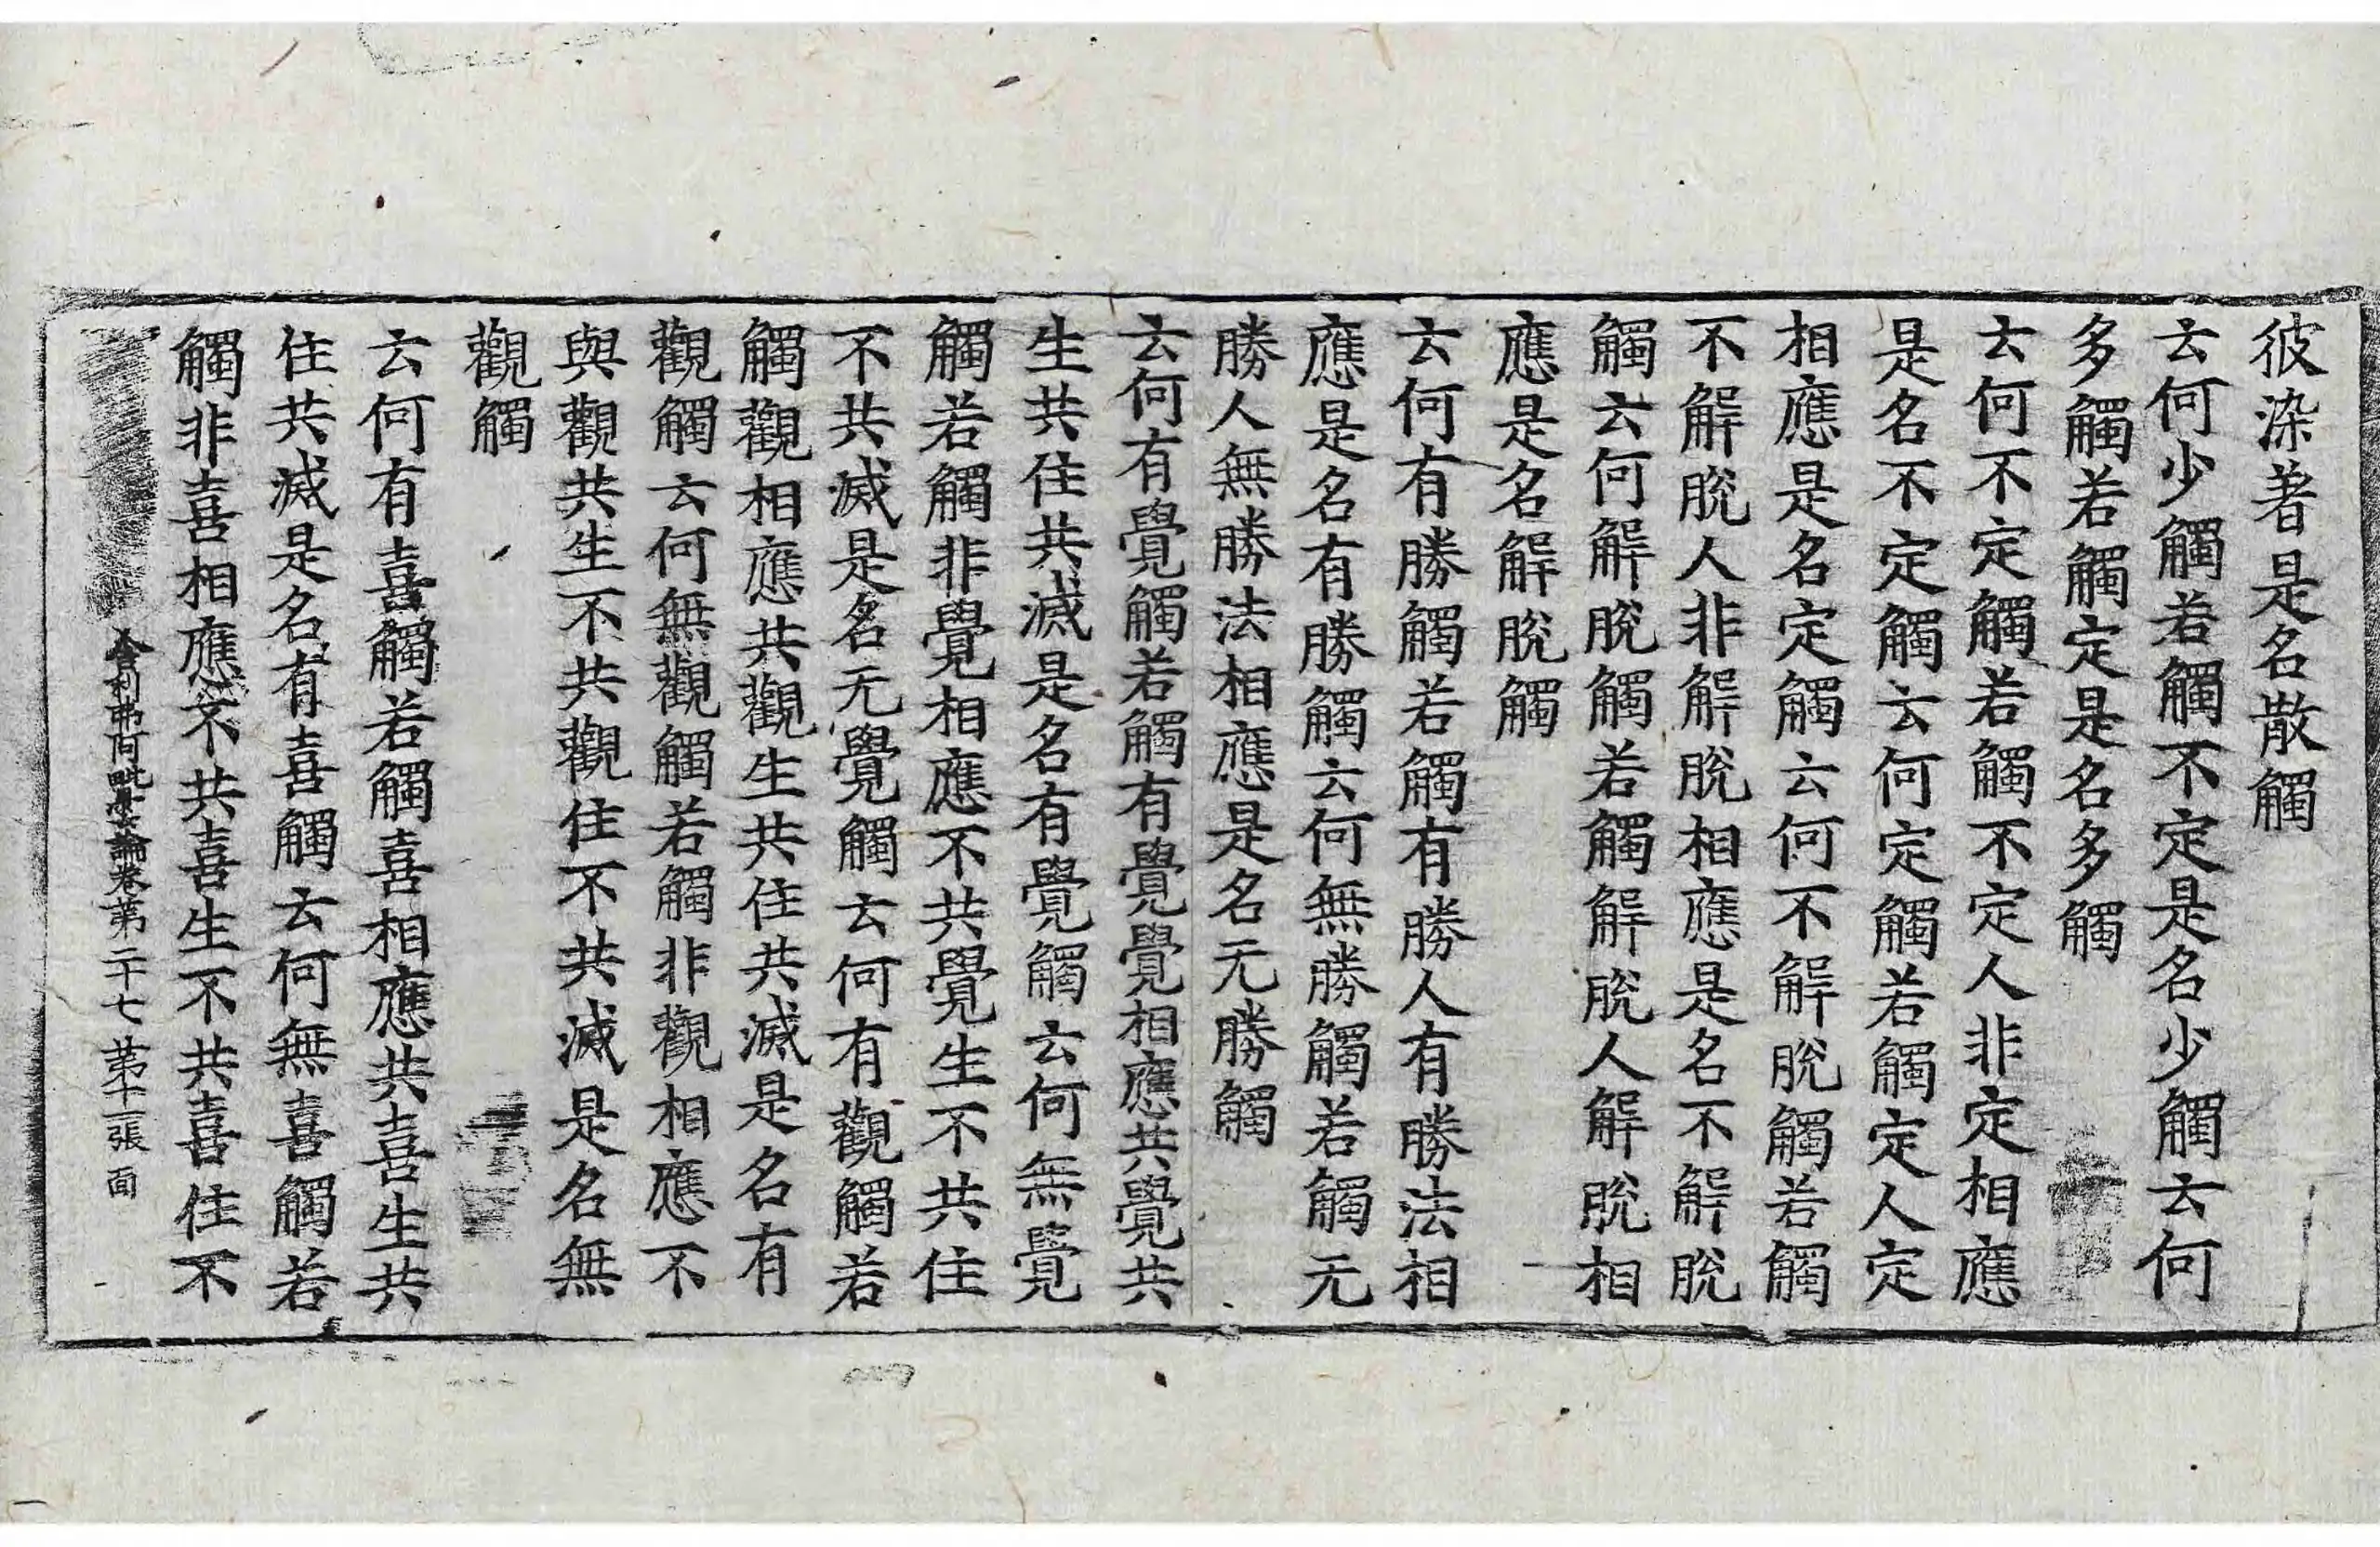 彼染著是名散觸
云何少觸若觸不定是名少觸云何
多觸若觸定是名多觸
云何不定觸若觸不定人非定相應
是名不定觸云何定觸若觸定人定
相應是名定觸云何不解脫觸若觸
不解脫人非解脫相應是名不解脫
觸云何解脫觸若觸解脫人解脫相
應是名解脫觸
云何有勝觸若觸有勝人有勝法相
應是名有勝觸云何無勝觸若觸无
勝人無勝法相應是名无勝觸
云何有覺觸若觸有覺覺相應共覺共
生共住共滅是名有覺觸云何無覺
觸若觸非覺相應不共覺生不共住
不共滅是名无覺觸云何有觀觸若
觸觀相應共觀生共住共滅是名有
觀觸云何無觀觸若觸非觀相應不
與觀共生不共觀住不共滅是名無
觀觸
云何有喜觸若觸喜相應共喜生共
住共滅是名有喜觸云何無喜觸若
觸非喜相應不共喜生不共喜住不
舍利弗阿毗曇論卷第二十七 第十二張 面